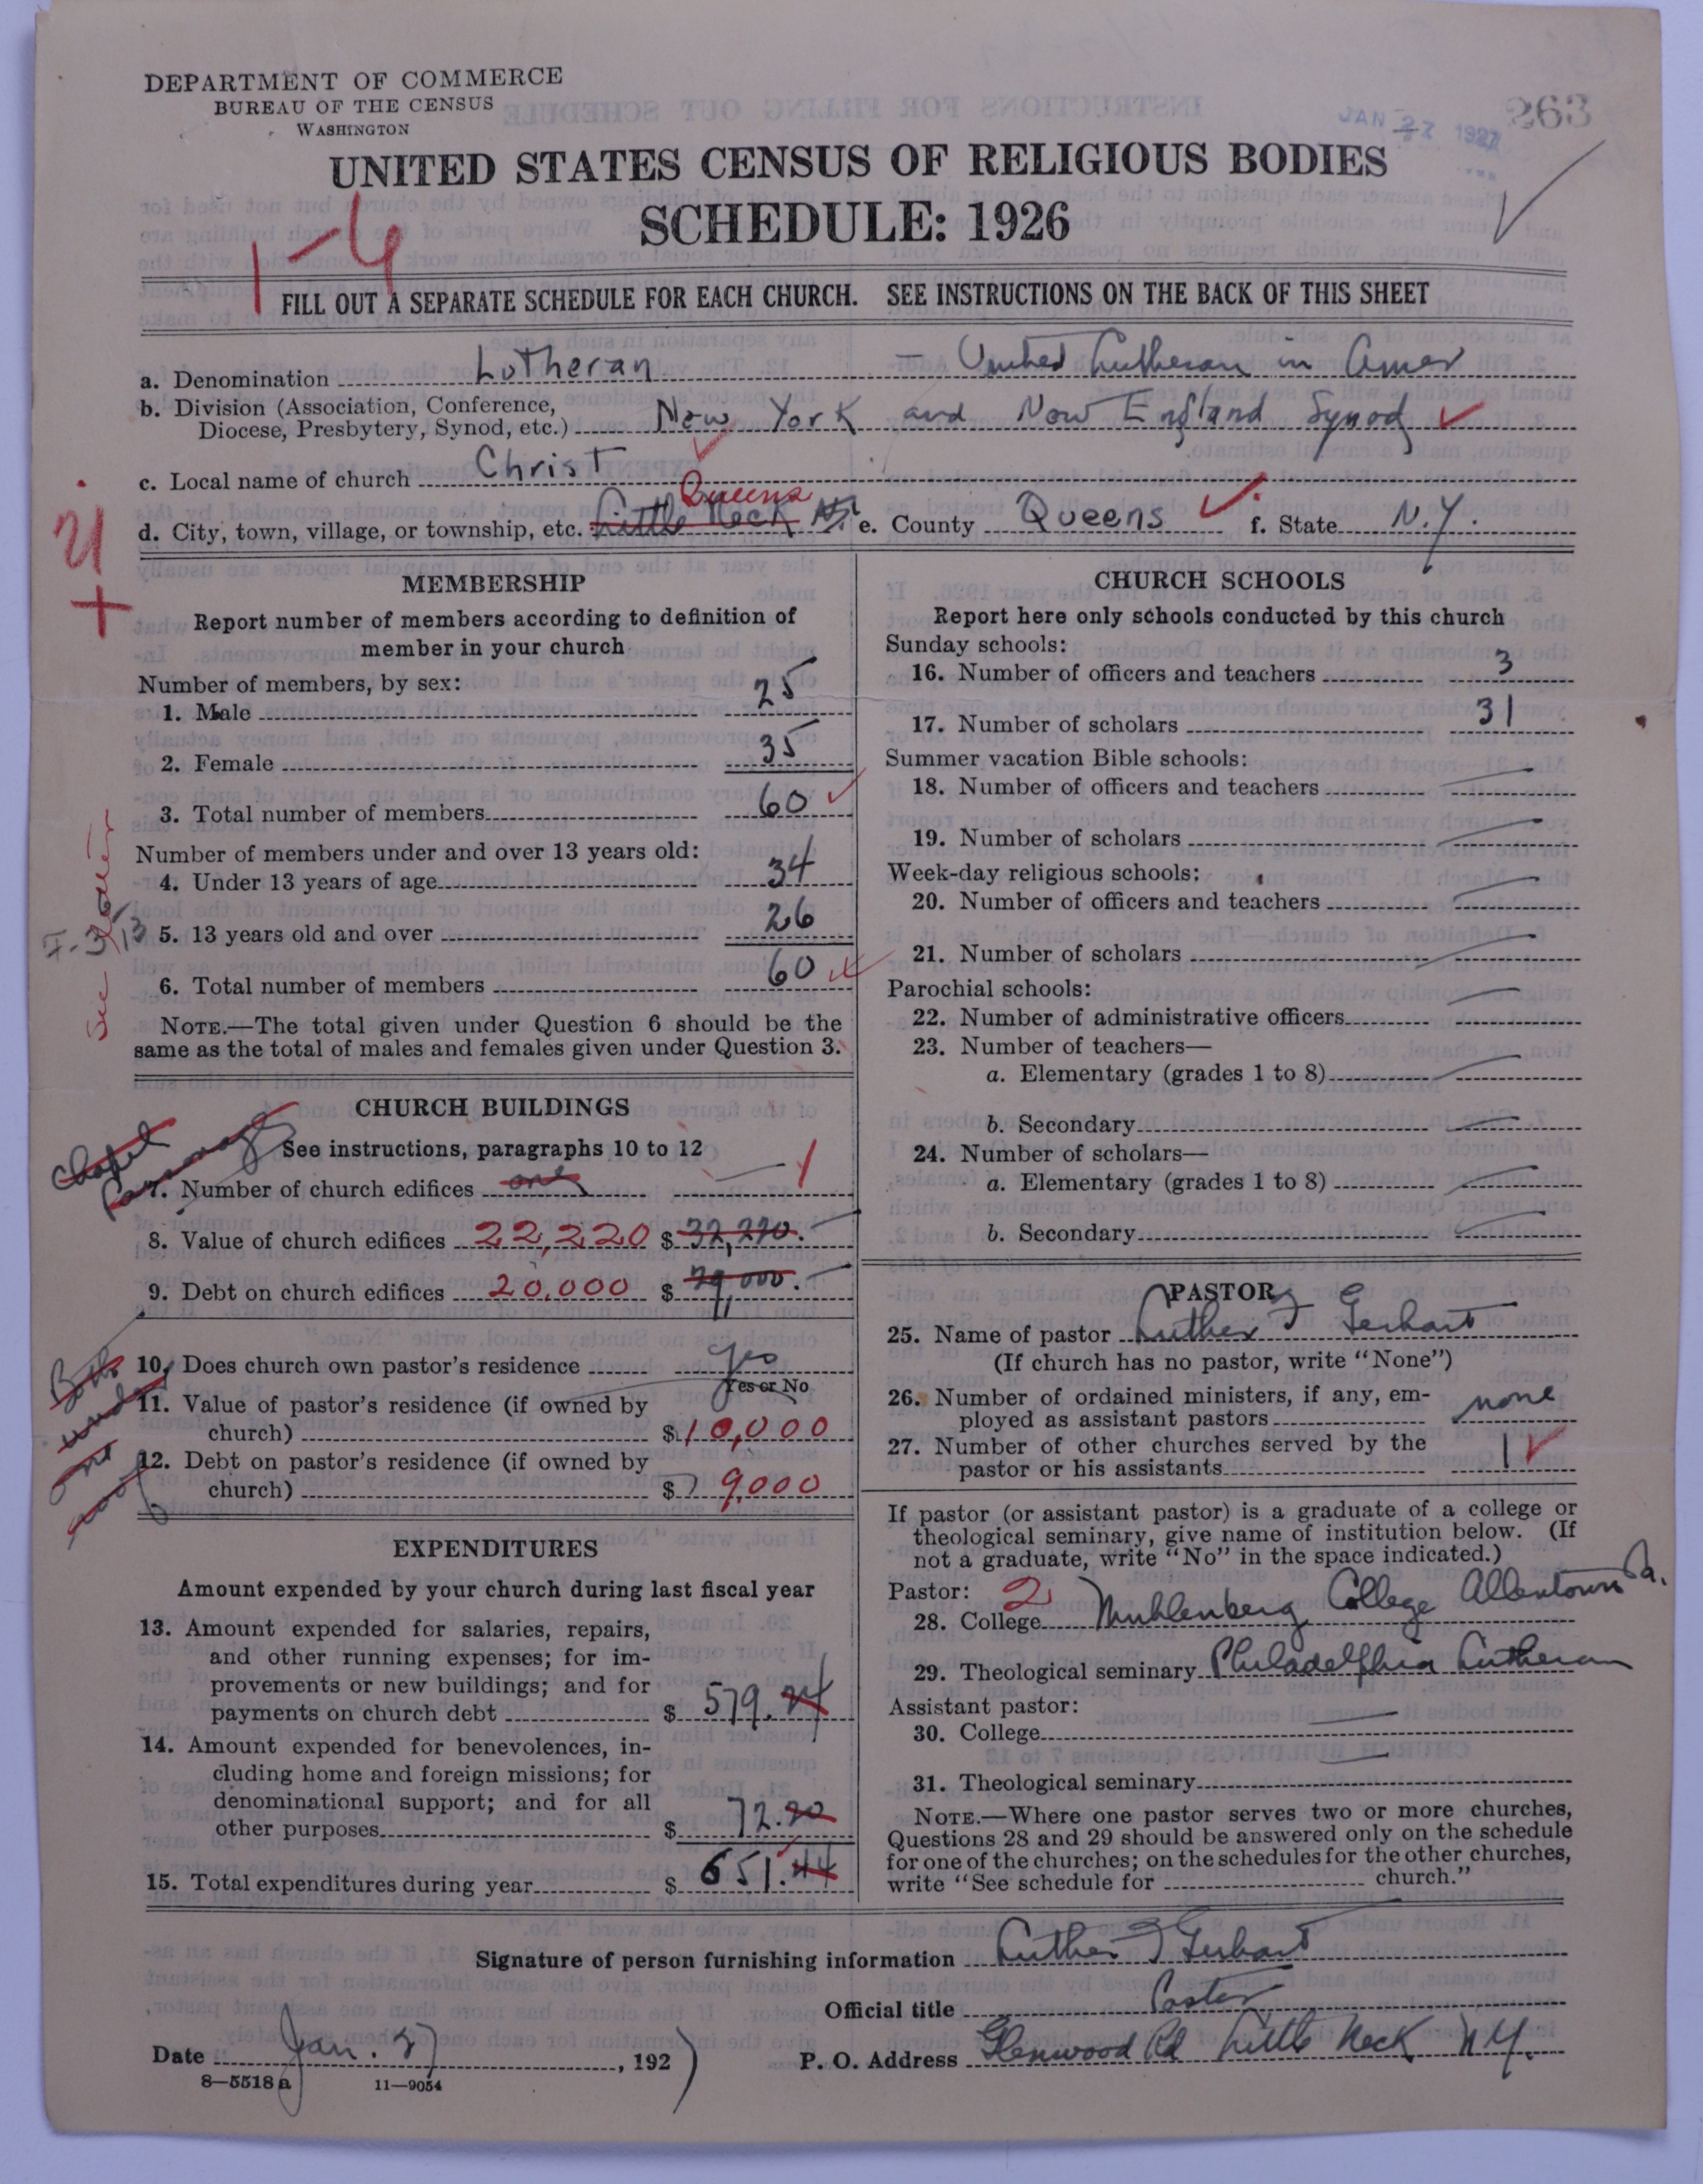 DEPARTMENT OF COMMERCE
BUREAU OF THE CENSUS
WASHINGTON
JAN 27 1927
263
UNITED STATES CENSUS OF RELIGIOUS BODIES
SCHEDULE: 1926
1-4
FILL OUT A SEPARATE SCHEDULE FOR EACH CHURCH. SEE INSTRUCTIONS ON THE BACK OF THIS SHEET
a. Denomination Lutheran — United Lutheran in Amer
b. Division (Association, Conference,
Diocese, Presbytery, Synod, etc.) New York and New England Synod
c. Local name of church Christ
Queens
d. City, town, village, or township, etc. Little Neck e. County Queens f. State N.Y.
MEMBERSHIP
Report number of members according to definition of
member in your church
Number of members, by sex:
1. Male 25
2. Female 35
3. Total number of members 60
Number of members under and over 13 years old:
4. Under 13 years of age 34
5. 13 years old and over 26
6. Total number of members 60
NOTE.—The total given under Question 6 should be the
same as the total of males and females given under Question 3.
CHURCH BUILDINGS
Chapel
Parsonage
See instructions, paragraphs 10 to 12
7. Number of church edifices one 1
8. Value of church edifices 22,220 $ 32,220.
9. Debt on church edifices 20,000 $ 29,000.
10. Does church own pastor's residence yes
Yes or No
11. Value of pastor's residence (if owned by
church) $ 10,000
12. Debt on pastor's residence (if owned by
church) $ 9,000
Both
under
one
roof
EXPENDITURES
Amount expended by your church during last fiscal year
13. Amount expended for salaries, repairs,
and other running expenses; for im-
provements or new buildings; and for
payments on church debt $ 579.24
14. Amount expended for benevolences, in-
cluding home and foreign missions; for
denominational support; and for all
other purposes $ 72.20
15. Total expenditures during year $ 651.44
CHURCH SCHOOLS
Report here only schools conducted by this church
Sunday schools:
16. Number of officers and teachers 3
17. Number of scholars 31
Summer vacation Bible schools:
18. Number of officers and teachers
19. Number of scholars
Week-day religious schools:
20. Number of officers and teachers
21. Number of scholars
Parochial schools:
22. Number of administrative officers
23. Number of teachers—
a. Elementary (grades 1 to 8)
b. Secondary
24. Number of scholars—
a. Elementary (grades 1 to 8)
b. Secondary
PASTOR
25. Name of pastor Luther F Gerhart
(If church has no pastor, write "None")
26. Number of ordained ministers, if any, em-
ployed as assistant pastors none
27. Number of other churches served by the
pastor or his assistants 1
If pastor (or assistant pastor) is a graduate of a college or
theological seminary, give name of institution below. (If
not a graduate, write "No" in the space indicated.)
Pastor: 2
28. College Muhlenberg College Allentown Pa.
29. Theological seminary Philadelphia Lutheran
Assistant pastor:
30. College
31. Theological seminary
NOTE.—Where one pastor serves two or more churches,
Questions 28 and 29 should be answered only on the schedule
for one of the churches; on the schedules for the other churches,
write "See schedule for church."
Signature of person furnishing information Luther F Gerhart
Official title Pastor
Date Jan. 27, 1927 P. O. Address Glenwood Rd Little Neck N.Y.
8—5518 a 11—9054